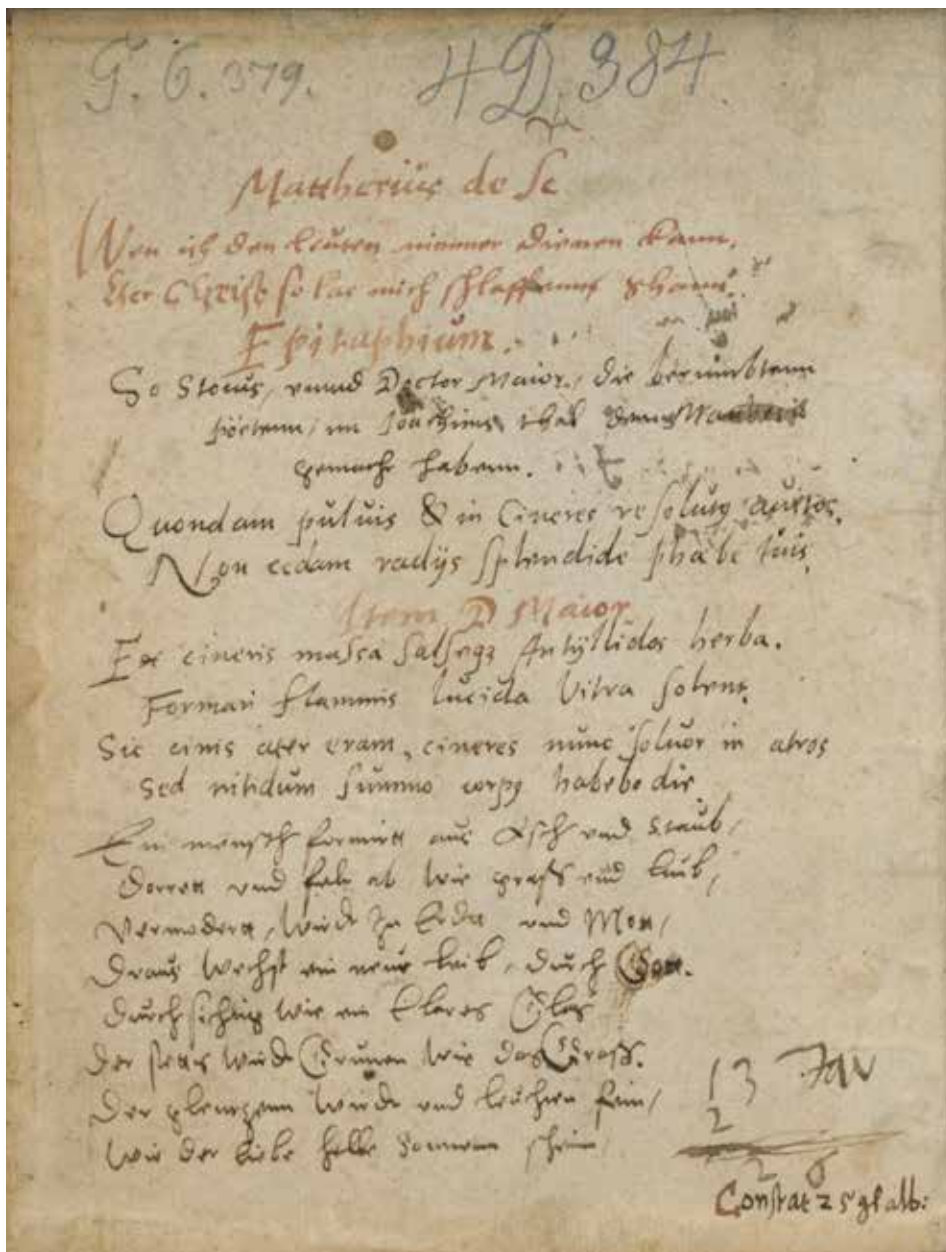 G. 6. 379. 4 D. 384
Matthesiüs de se
Wen ich den leuten nimmer dienen kann,
Her Christ so las mich schlaffenn
Epitaphium.
So Stoius, vnnd Doctor Maior, die berümbtenn
Poetenn, im Joachims thal
gemacht habenn.
Quondam puluis & in Cineres resolutꝰ auitos,
Non cedam radijs splendide phæbe tuis.
Item D Maior
Ex cineris massa salsæqꝫ Antyllidos herba.
Formari flammis lucida Vitra solent,
Sic cinis ater eram, cineres nunc soluor in atros
Sed nitidum summo corpꝰ habebo die
Ein mensch formirt aus Asch vnd Staub,
Dorret vnd felt ab wie grass vnd laub,
Vermodert, wirdt zu Erdt vnd Mott,
Draus wechst ein neuer leib, durch Gott.
Durchsichtig wie ein klares Glas
Der stets wirdt Grunen wie das Grass.
Der glentzenn wirdt vnd leuchten fein,
Wie der liebe helle Sonnenn schein,
13
2
2 6
Constat 2 5 gl alb: